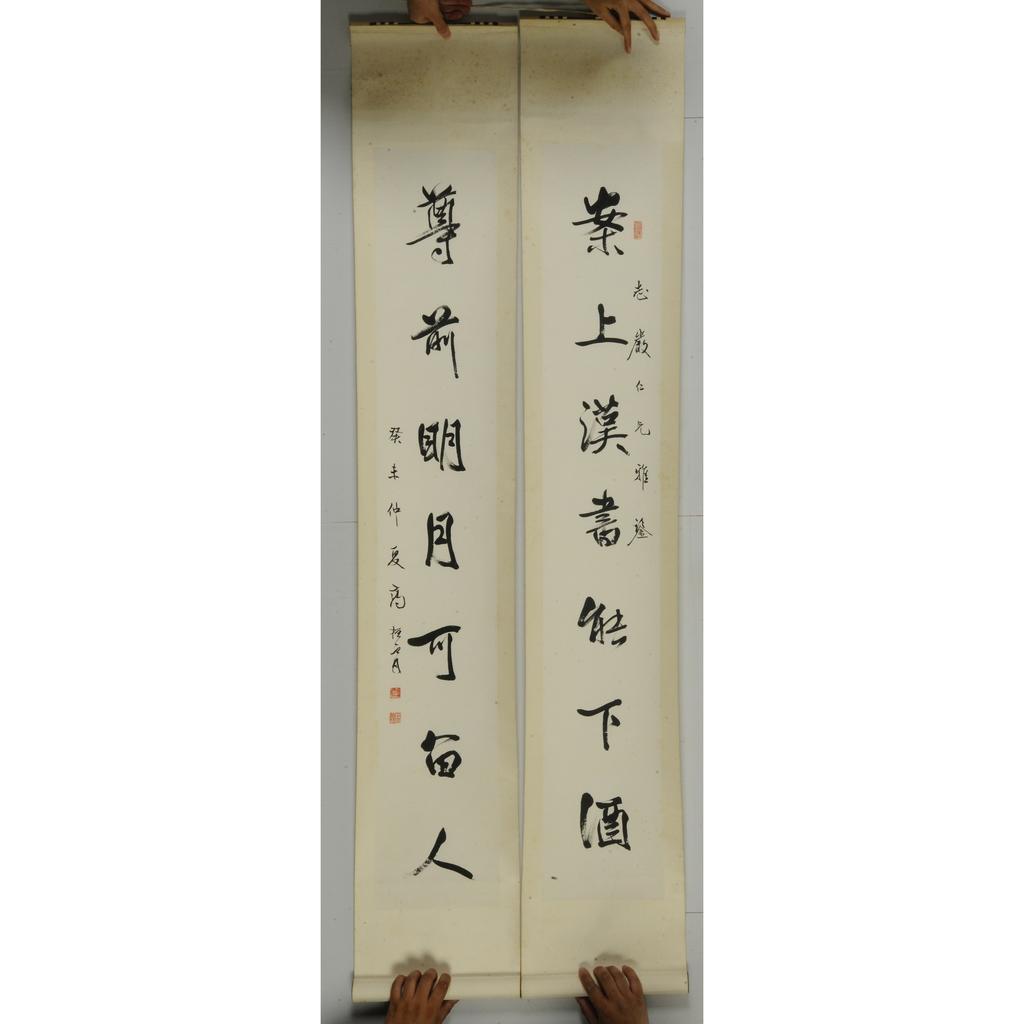 案上漢書能下酒
志嚴仁兄雅鑒
尊前明月可留人
癸未仲夏高振霄